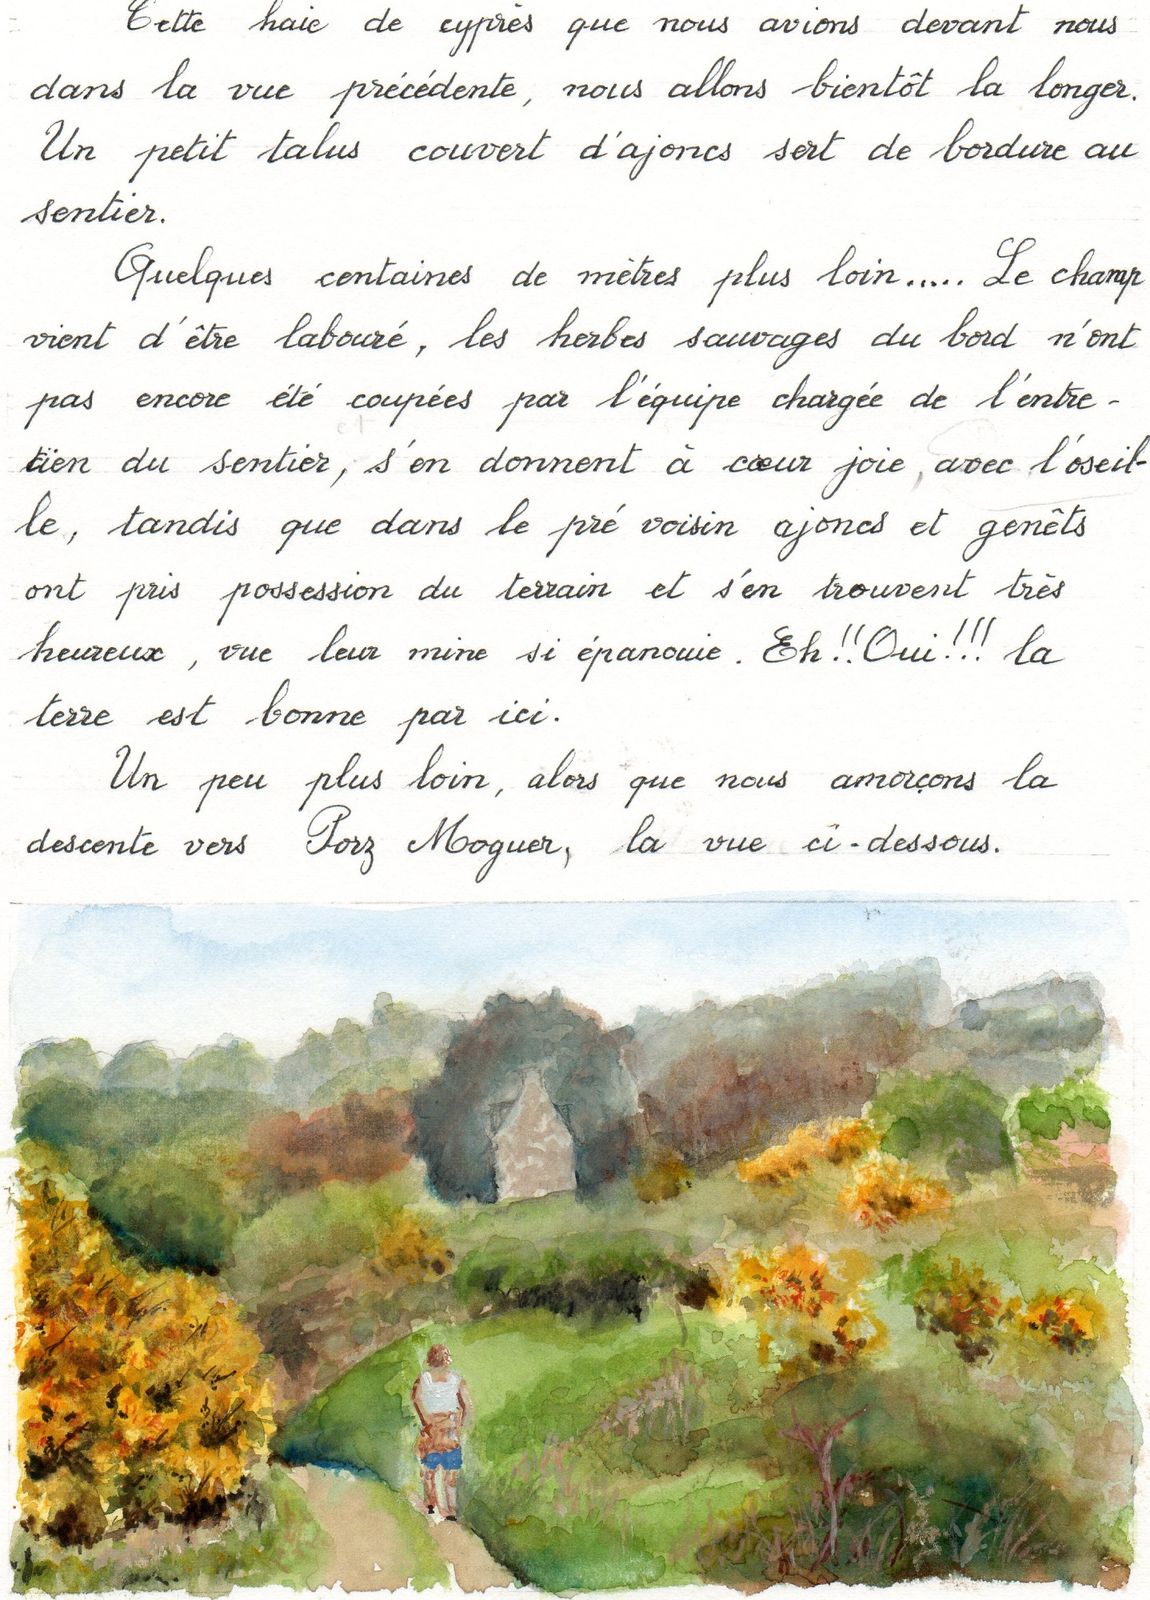 Cette haie de cyprès que nous avions devant nous
dans la vue précédente, nous allons bientôt la longer.
Un petit talus couvert d'ajoncs sert de bordure au
sentier.
Quelques centaines de mètres plus loin..... Le champ
vient d'être labouré, les herbes sauvages du bord n'ont
pas encore été coupées par l'équipe chargée de l'entre-
tien du sentier, s'en donnent à cœur joie, avec l'oseil-
le, tandis que dans le pré voisin ajoncs et genêts
ont pris possession du terrain et s'en trouvent très
heureux, vue leur mine si épanouie. Eh!! Oui!!! la
terre est bonne par ici.
Un peu plus loin, alors que nous amorçons la
descente vers Porz Moguer, la vue ci-dessous.